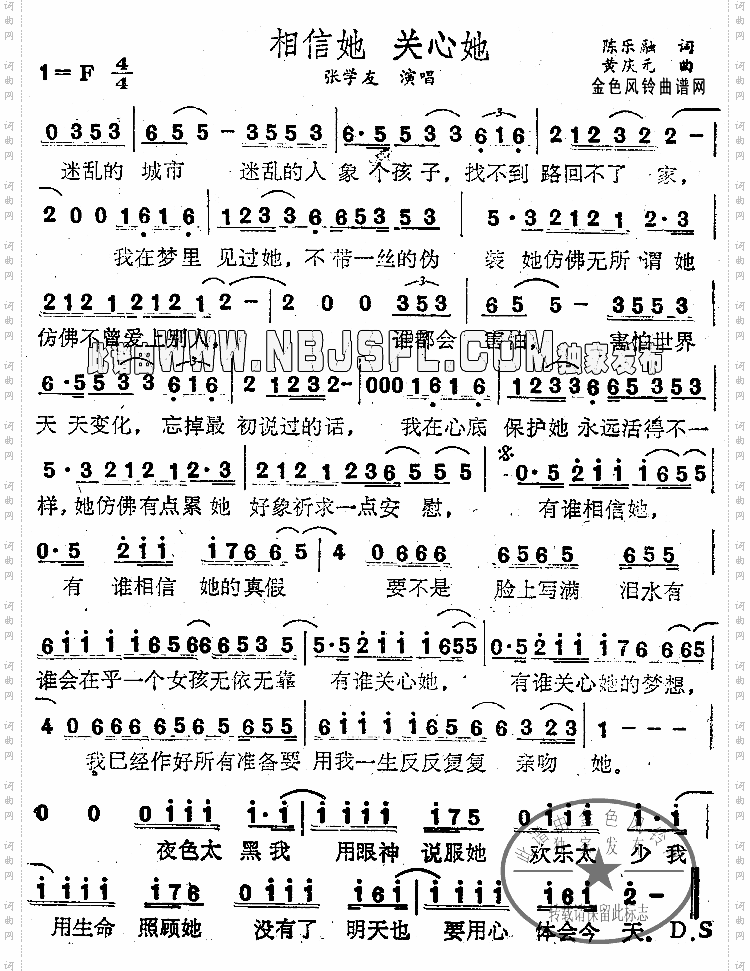 相信她 关心她
陈乐融 词
1=F 4/4
张学友 演唱
黄庆元 曲
金色风铃曲谱网
0353 655-3553 6·553 3616 212322-
迷乱的 城市 迷乱的人 象 个孩子,找不到 路回不了 家,
200161 6 12336653 53 5·32121 2·3
我在梦里 见过她,不带一丝的伪 装 她仿佛无所谓她
212121212- 200353 65 5-3553
仿佛不曾爱上别人, 谁都会 害怕, 害怕世界
此谱由WWW.NBJSPL.COM独家发布
6·5533616 21232- 0001616 12333665353
天 天变化,忘掉最 初说过的话, 我在心底 保护她 永远活得不一
5·3212 12·3 212 1236555 0·52111655
样,她仿佛有点累她 好象祈求一点安 慰, 有谁相信她,
0·5 211 17665 40666 6565 655
有 谁相信 她的真假 要不是 脸上写满 泪水有
6111165666535 5·52111655 0·5211176665
谁会在乎一个女孩无依无靠 有谁关心她, 有谁关心她的梦想,
40666 6565 655 6111165666 323 1---
我已经作好所有准备要 用我一生反反复复 亲吻 她。
0 0 0111 1·1 1111 175 0111 1·1
夜色太 黑我 用眼神 说服她 欢乐太 少我
1111 176 0111 161 1111 161 2-
用生命 照顾她 没有了 明天也 要用心 体会今 天。D.S
转载请保留此标志
词曲网